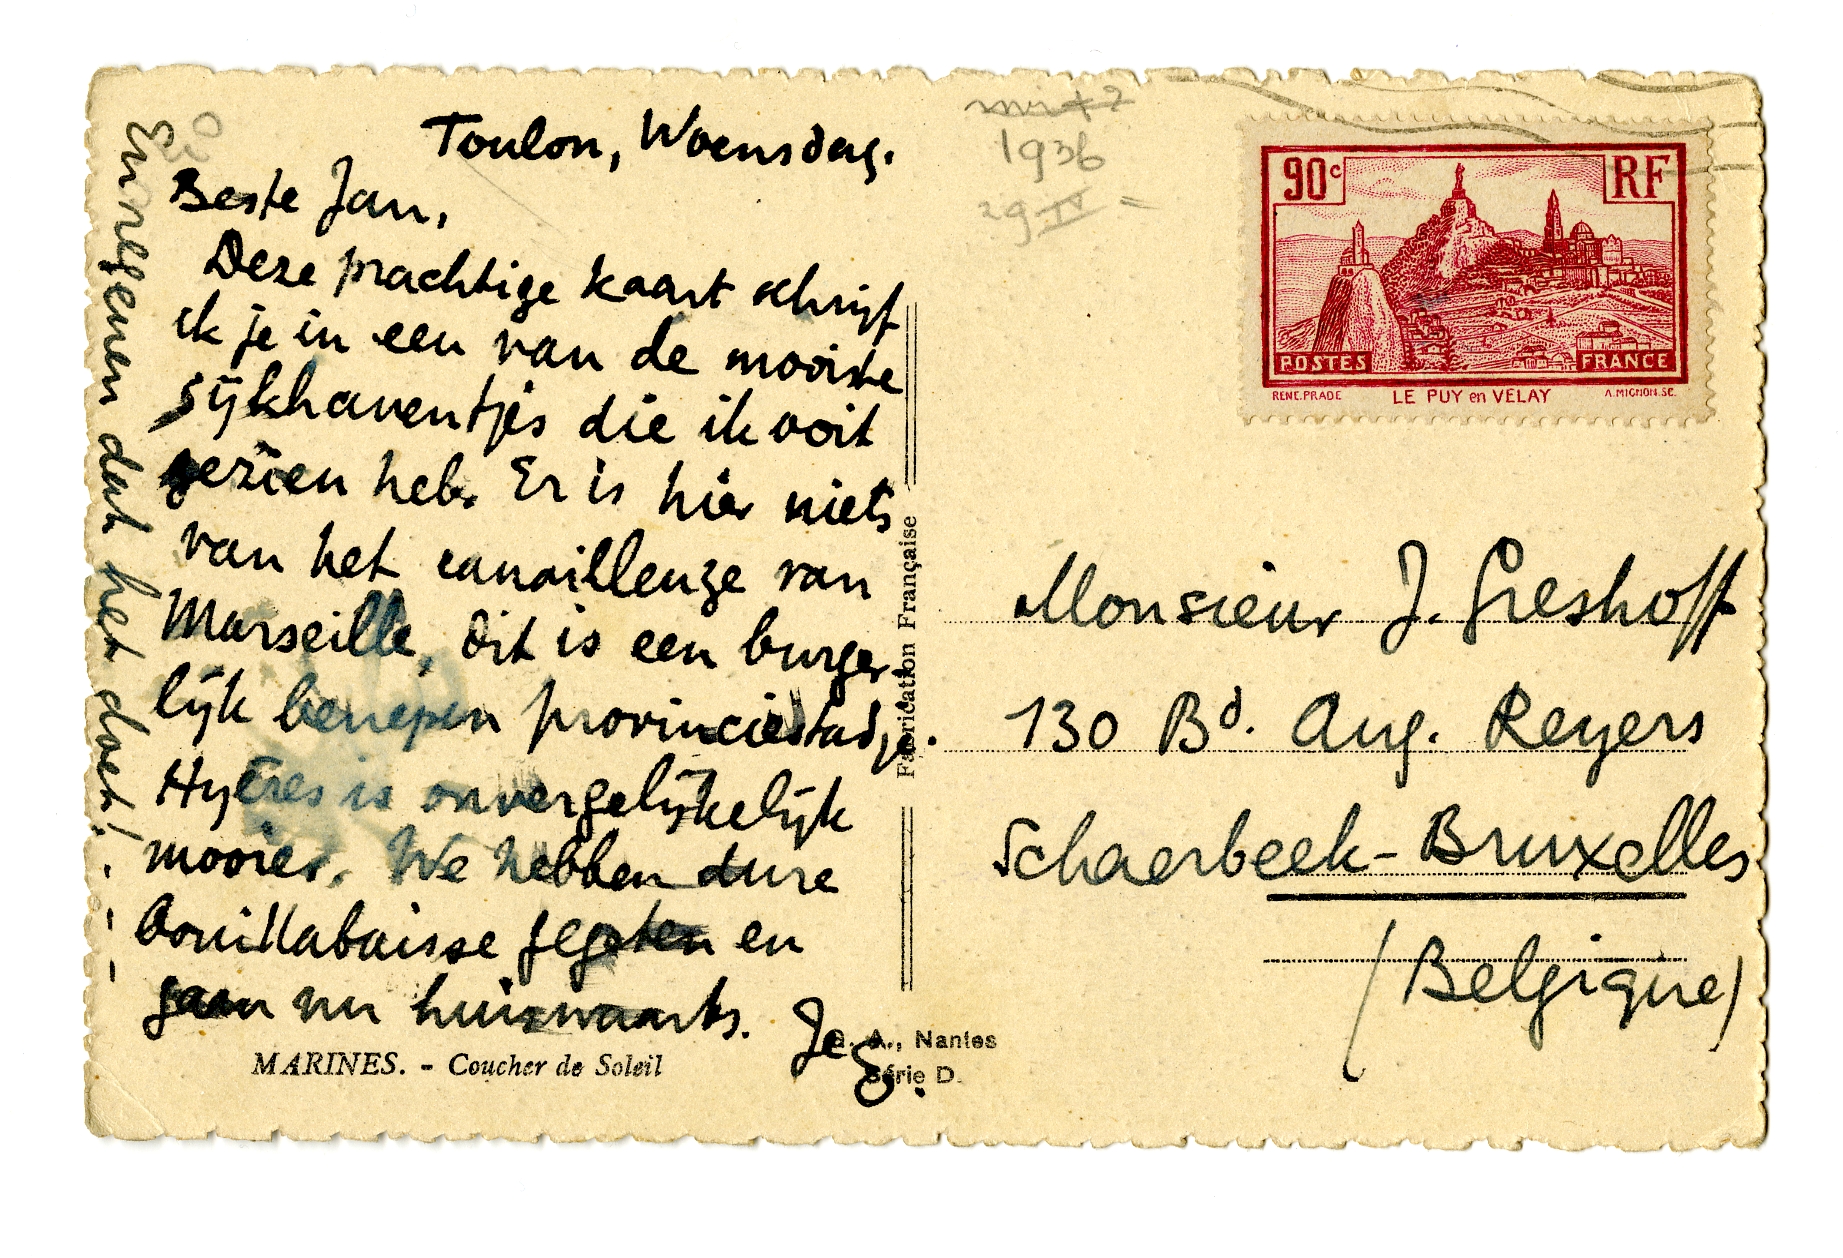 Toulon, Woensdag.
Beste Jan,
Deze prachtige kaart schrijf
ik je in een van de mooiste
sijkhaventjes die ik ooit
gezien heb. Er is hier niets
van het canailleuze van
Marseille, dit is een burger-
lijk benepen provinciestadje.
Hyères is onvergelijkelijk
mooier. We hebben dure
bouillabaisse gegeten en
gaan nu huiswaarts.
Je
En regenen dat het doet!
MARINES. - Coucher de Soleil
A., Nantes
Série D.
Fabrication Française
1936
29 IV
90c RF
POSTES FRANCE
RENE.PRADE LE PUY en VELAY A.MIGNON.SC.
Monsieur J. Greshoff
130 Bd. Aug. Reyers
Schaerbeek-Bruxelles
(Belgique)